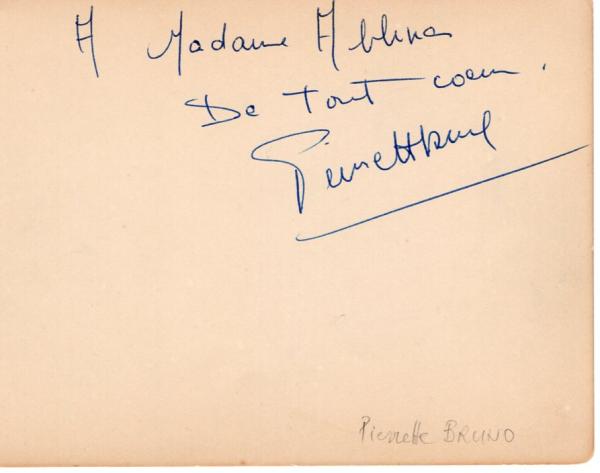 A Madame
De tout coeur.
Pierrette Bruno
Pierrette BRUNO